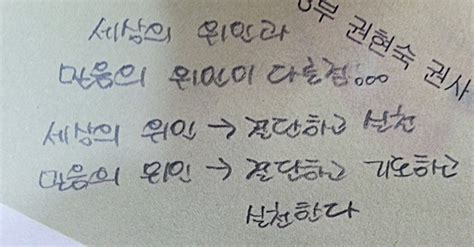 부 권현숙 권사
세상의 위인과
믿음의 위인이 다른점...
세상의 위인 → 결단하고 실천
믿음의 위인 → 결단하고 기도하고
실천한다